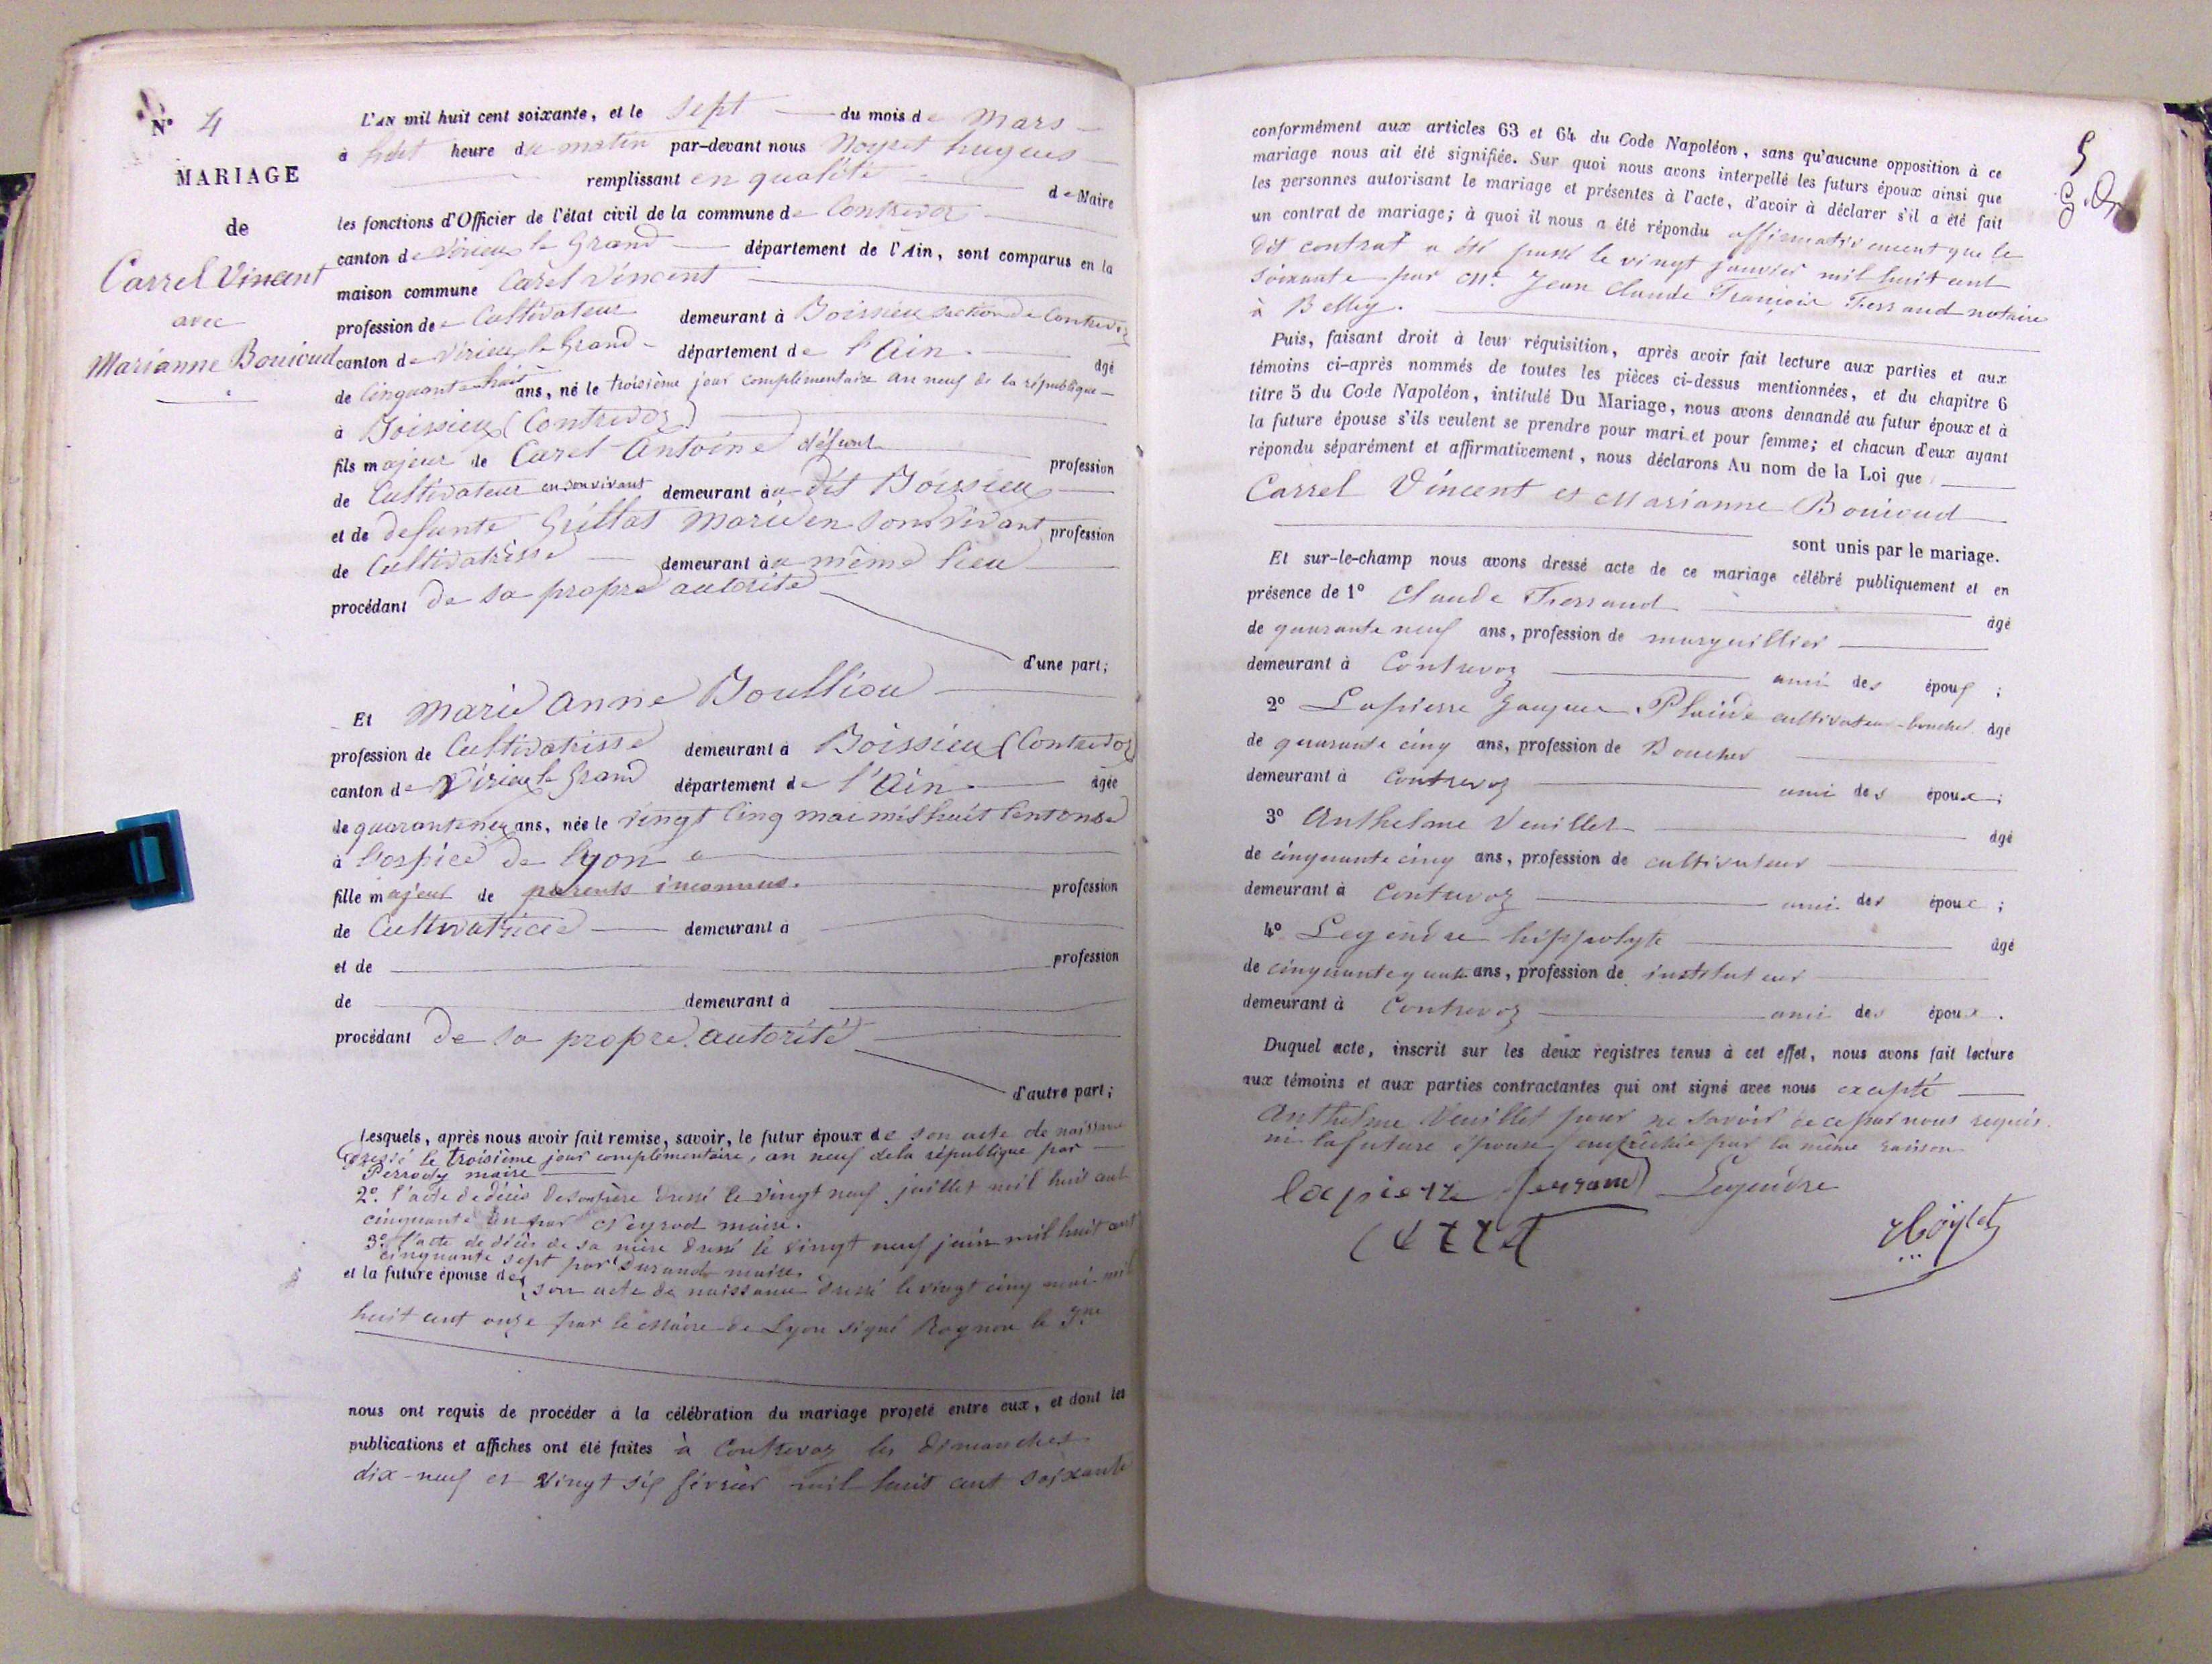 N° 4
MARIAGE
de
Carrel Vincent
avec
Marianne Bouioud
L'AN mil huit cent soixante, et le sept du mois de Mars
à huit heure du matin par-devant nous Noyret hugues
remplissant en qualité de Maire
les fonctions d'Officier de l'état civil de la commune de Contrevoz
canton de Virieu le Grand département de l'Ain, sont comparus en la
maison commune Carel Vincent
profession de Cultivateur demeurant à Boissieu section de Contrevoz
canton de Virieu le Grand département de l'Ain âgé
de Cinquante huit ans, né le troisième jour complémentaire an neuf de la république
à Boissieu (Contrevoz)
fils majeur de Carel Antoine défunt profession
de Cultivateur en son vivant demeurant au dit Boissieu
et de defunte Grillat Marie en son vivant profession
de Cultivatrisse demeurant au même lieu
procédant de sa propre autorité
d'une part;
Et Marie anne Boulliou
profession de Cultivatrisse demeurant à Boissieu (Contrevoz)
canton de Virieu le Grand département de l'Ain âgée
de quarante neuf ans, née le vingt Cinq mai mil huit Cent onse
à l'ospice de Lyon
fille majeur de parents inconnus. profession
de Cultivatrice demeurant à
et de profession
de demeurant à
procédant de sa propre autorité
d'autre part;
Lesquels, après nous avoir fait remise, savoir, le futur époux de son acte de naissance
dressé le troisième jour complémentaire, an neuf de la république par
Perrody maire
2° l'acte de décès de son père dressé le vingt neuf juillet mil huit cent
cinquante un par Neyrod maire.
3° l'acte de décès de sa mère dressé le vingt neuf juin mil huit cent
cinquante sept par Durand maire.
et la future épouse de son acte de naissance dressé le vingt cinq mai mil
huit cent onze par le Maire de Lyon signé Rognon le Jne
nous ont requis de procéder à la célébration du mariage projeté entre eux, et dont les
publications et affiches ont été faites à Contrevoz les dimanches
dix-neuf et vingt six février mil huit cent soixante
5
conformément aux articles 63 et 64 du Code Napoléon, sans qu'aucune opposition à ce
mariage nous ait été signifiée. Sur quoi nous avons interpellé les futurs époux ainsi que
les personnes autorisant le mariage et présentes à l'acte, d'avoir à déclarer s'il a été fait
un contrat de mariage; à quoi il nous a été répondu affirmativement que le
dit contrat a été passé le vingt janvier mil huit cent
soixante par Me Jean Claude François Ferrand notaire
à Belley.
Puis, faisant droit à leur réquisition, après avoir fait lecture aux parties et aux
témoins ci-après nommés de toutes les pièces ci-dessus mentionnées, et du chapitre 6
titre 5 du Code Napoléon, intitulé Du Mariage, nous avons demandé au futur époux et à
la future épouse s'ils veulent se prendre pour mari et pour femme; et chacun d'eux ayant
répondu séparément et affirmativement, nous déclarons Au nom de la Loi que
Carrel Vincent et Marianne Bouioud
sont unis par le mariage.
Et sur-le-champ nous avons dressé acte de ce mariage célébré publiquement et en
présence de 1° Claude Ferrand âgé
de quarante neuf ans, profession de marguillier
demeurant à Contrevoz ami des époux ;
2° Lapierre Jacques Placide cultivateur-boucher âgé
de quarante cinq ans, profession de Boucher
demeurant à Contrevoz ami des époux ;
3° Anthelme Veuillet âgé
de cinquante cinq ans, profession de cultivateur
demeurant à Contrevoz ami des époux ;
4° Legendre hippolyte âgé
de cinquante quatre ans, profession de instituteur
demeurant à Contrevoz ami des époux.
Duquel acte, inscrit sur les deux registres tenus à cet effet, nous avons fait lecture
aux témoins et aux parties contractantes qui ont signé avec nous excepté
Anthelme Veuillet pour ne savoir de ce par nous requis.
ni la future épouse empêchée par la même raison
lapierre ferrand Legendre
carrel Noyret